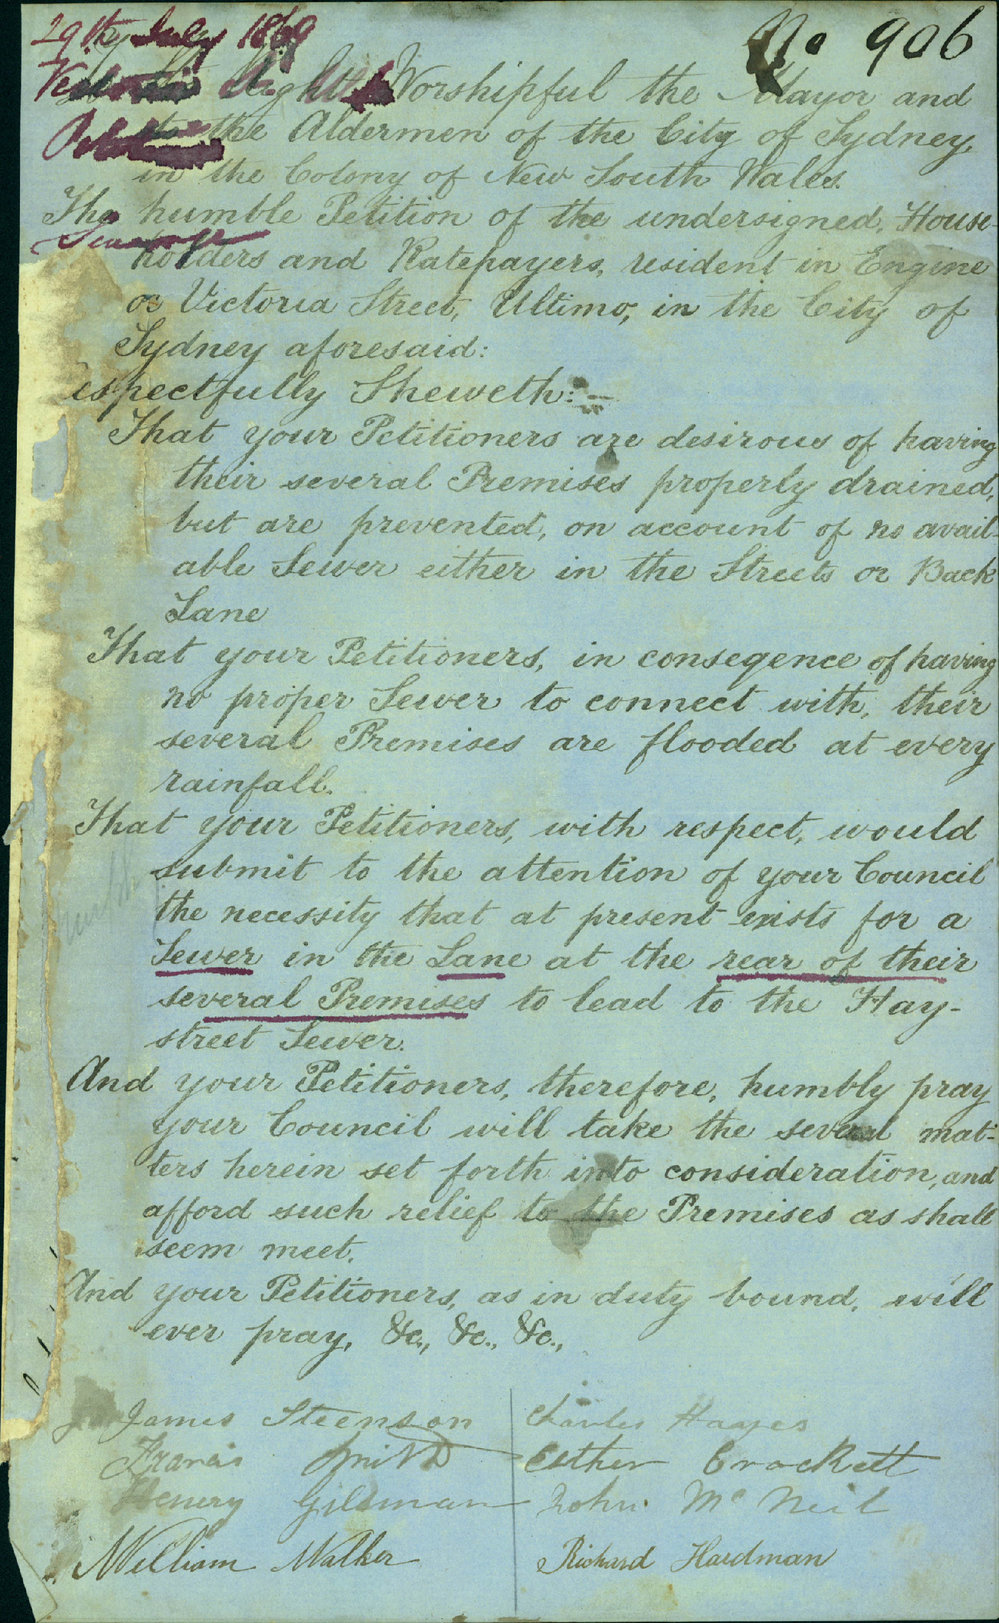 29th July 1869
No 906
Right Worshipful the Mayor and
to the Aldermen of the City of Sydney,
in the Colony of New South Wales.
The humble Petition of the undersigned, House-
Sewerage
holders and Ratepayers, resident in Engine
or Victoria Street, Ultimo, in the City of
Sydney aforesaid:
espectfully Sheweth:—
That your Petitioners are desirous of having
their several Premises properly drained,
but are prevented, on account of no avail-
able Sewer either in the Streets or Back
Lane
That your Petitioners, in conseqence of having
no proper Sewer to connect with, their
several Premises are flooded at every
rainfall.
That your Petitioners, with respect, would
submit to the attention of your Council
the necessity that at present exists for a
Sewer in the Lane at the rear of their
several Premises to lead to the Hay-
street Sewer.
And your Petitioners, therefore, humbly pray
your Council will take the several mat-
ters herein set forth into consideration, and
afford such relief to the Premises as shall
seem meet.
And your Petitioners, as in duty bound, will
ever pray, &c., &c., &c.,
James Steenson
Charles Hayes
Francis Smith
Esther Crockett
Henery Gillman
John McNeil
William Walker
Richard Hardman